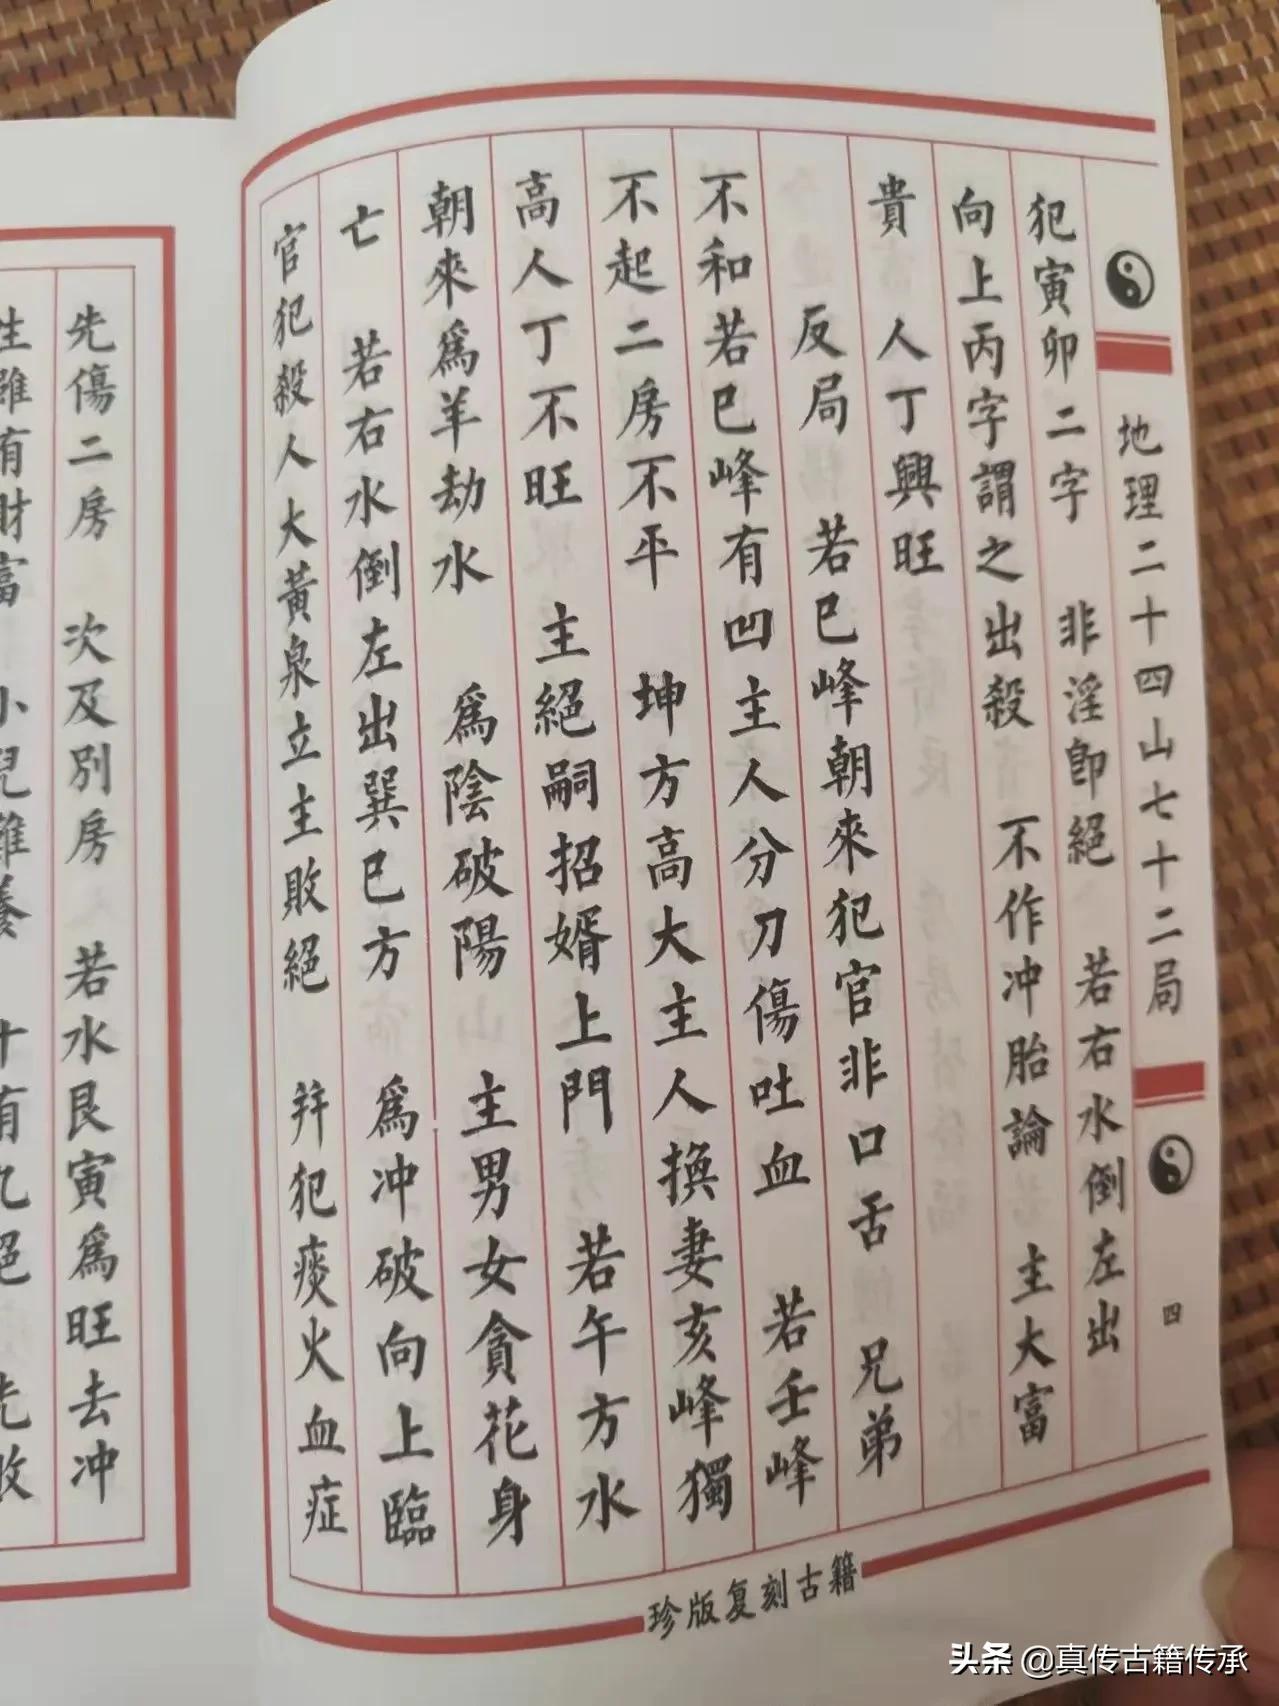 地理二十四山七十二局
四
犯寅卯二字 非淫即絕 若右水倒左出
向上丙字謂之出殺 不作冲胎論 主大富
貴 人丁興旺
反局 若巳峰朝來犯官非口舌 兄弟
不和若巳峰有凹主人分刀傷吐血 若壬峰
不起二房不平 坤方高大主人換妻亥峰獨
高人丁不旺 主絕嗣招婿上門 若午方水
朝來爲羊劫水 爲陰破陽 主男女貪花身
亡 若右水倒左出巽巳方 爲冲破向上臨
官犯殺人大黃泉立主敗絕 并犯痰火血症
珍版复刻古籍
先傷二房 次及別房 若水艮寅爲旺去冲
性雖有財富 小兒難養 十有九絕 先敗
头条 @真传古籍传承